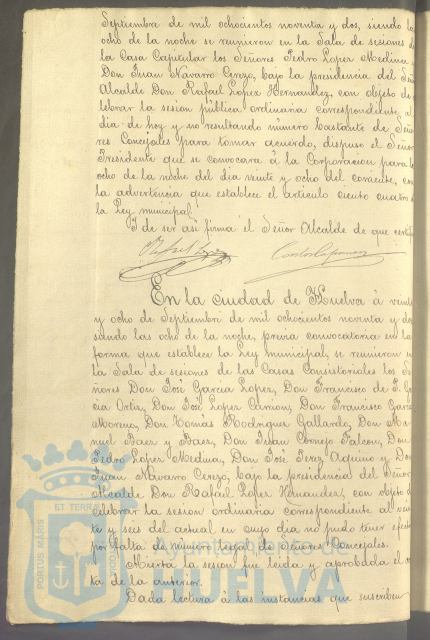 Septiembre de mil ochocientos noventa y dos, siendo las
ocho de la noche se reunieron en la Sala de sesiones de
la Casa Capitular los Señores Pedro Lopez Medina y
Don Juan Navarro Cerezo, bajo la presidencia del Señor
Alcalde Don Rafael Lopez Hernandez, con objeto de ce
lebrar la sesion pública ordinaria correspondiente al
dia de hoy y no resultando número bastante de Seño
res Concejales para tomar acuerdo, dispuso el Señor
Presidente que se convocara á la Corporacion para las
ocho de la noche del dia veinte y ocho del corriente, con
la advertencia que establece el articulo ciento cuatro de
la Ley municipal.
Y de ser asi firma el Señor Alcalde de que certifico
En la ciudad de Huelva á veinte
y ocho de Septiembre de mil ochocientos noventa y dos
siendo las ocho de la noche, previa convocatoria en la
forma que establece la Ley municipal, se reunieron en
la Sala de sesiones de las Casas Consistoriales los Se
ñores Don José Garcia Lopez, Don Francisco de P. Gar
cia Ortiz, Don José Lopez Carmona, Don Francisco Garcia
Moreno, Don Tomás Rodriguez Gallardo, Don Ma
nuel Baez y Baez, Don Juan Cornejo Falcon, Don
Pedro Lopez Medina, Don José Perez Aquino y Don
Juan Navarro Cerezo, bajo la presidencia del Señor
Alcalde Don Rafael Lopez Hernandez, con objeto de
celebrar la sesion ordinaria correspondiente al vein
te y seis del actual en cuyo dia no pudo tener efecto
por falta de número legal de Señores Concejales.
Abierta la sesion fue leida y aprobada el ac
ta de la anterior.
Dada lectura á las instancias que suscriben
PORTUS MARIS ET TERRAE
Ayuntamiento de
HUELVA